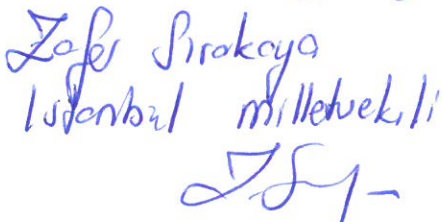 Zafer Sırakaya
İstanbul milletvekili